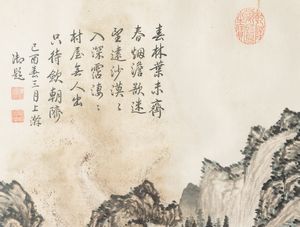 春林葉未齊
春烟澹欲迷
望遠沙漠漠
入深露淒淒
村屋無人出
只待飲朝隮
己酉春三月上澣
御題